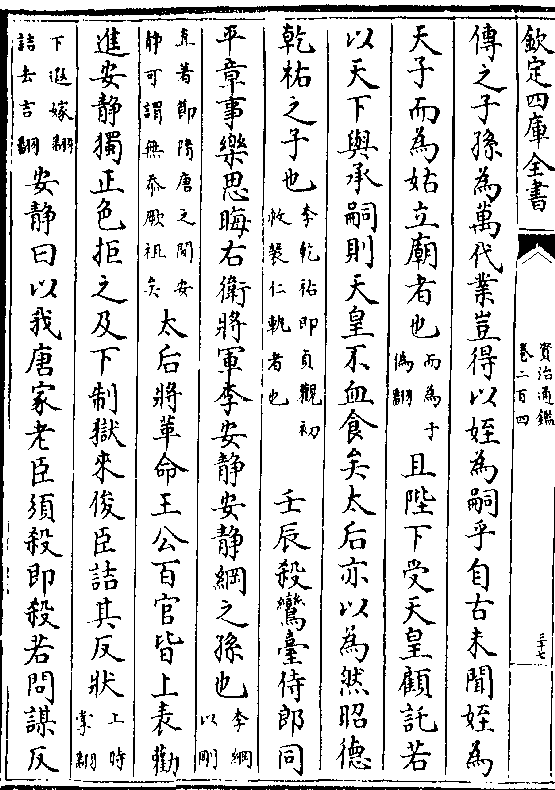 欽定四庫全書
資治通鑑
卷二百四
三十七
傳之子孫為萬代業豈得以姪為嗣乎自古未聞姪為
天子而為姑立廟者也而為于偽翻且陛下受天皇顧託若
以天下與承嗣則天皇不血食矣太后亦以為然昭德
乾祐之子也李乾祐即貞觀初救裴仁軌者也壬辰殺鸞臺侍郎同
平章事樂思晦右衛將軍李安靜安靜綱之孫也李綱以剛
直著節隋唐之間安靜可謂無忝厥祖矣太后將革命王公百官皆上表勸
進安靜獨正色拒之及下制獄來俊臣詰其反狀上時掌翻
下遐嫁翻詰去吉翻安靜曰以我唐家老臣須殺即殺若問謀反